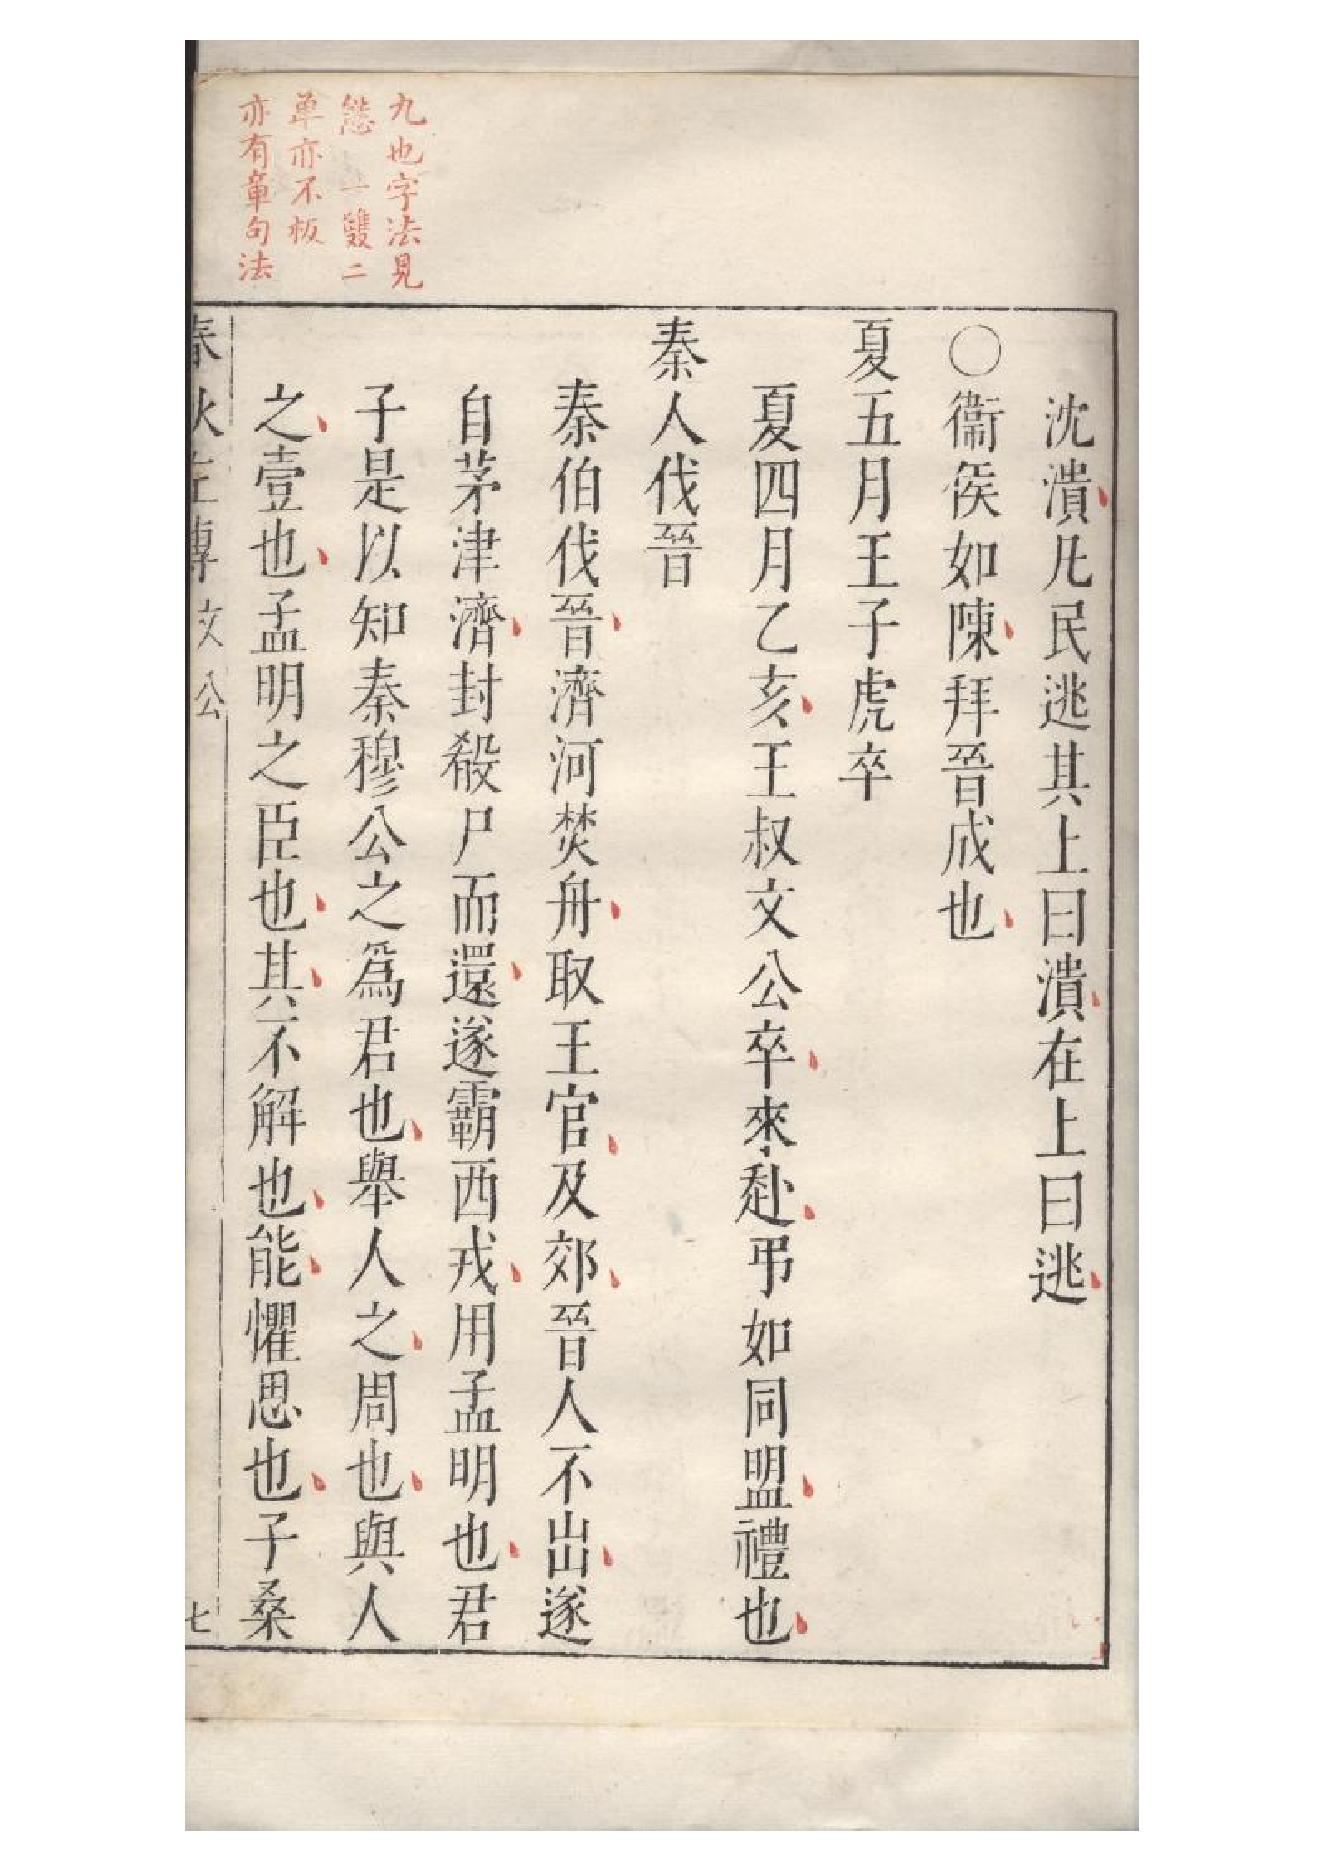 九也字法見
態一雙二
單亦不板
亦有章句法
沈潰凡民逃其上曰潰在上曰逃
〇衞侯如陳拜晉成也
夏五月王子虎卒
夏四月乙亥王叔文公卒來赴弔如同盟禮也
秦人伐晉
秦伯伐晉濟河焚舟取王官及郊晉人不出遂
自茅津濟封殽尸而還遂霸西戎用孟明也君
子是以知秦穆公之爲君也舉人之周也與人
之壹也孟明之臣也其不解也能懼思也子桑
春秋左傳 文公 七